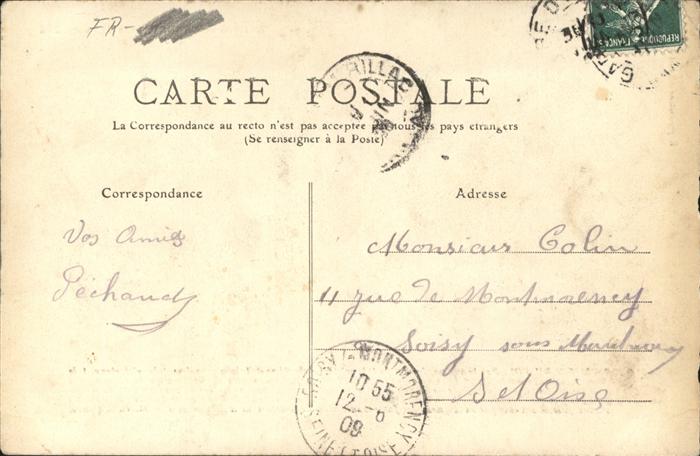 FR-
RILLAC
CARTE POSTALE
La Correspondance au recto n'est pas acceptée par tous les pays étrangers
(Se renseigner à la Poste)
Correspondance
Adresse
Vos amis
Péchaud
Monsieur Colin
11 rue de Montmorency
Soisy sous Montmorency
S et Oise
SOISY-s-MONTMORENCY
10 55
12 -6
09
SEINE ET OISE